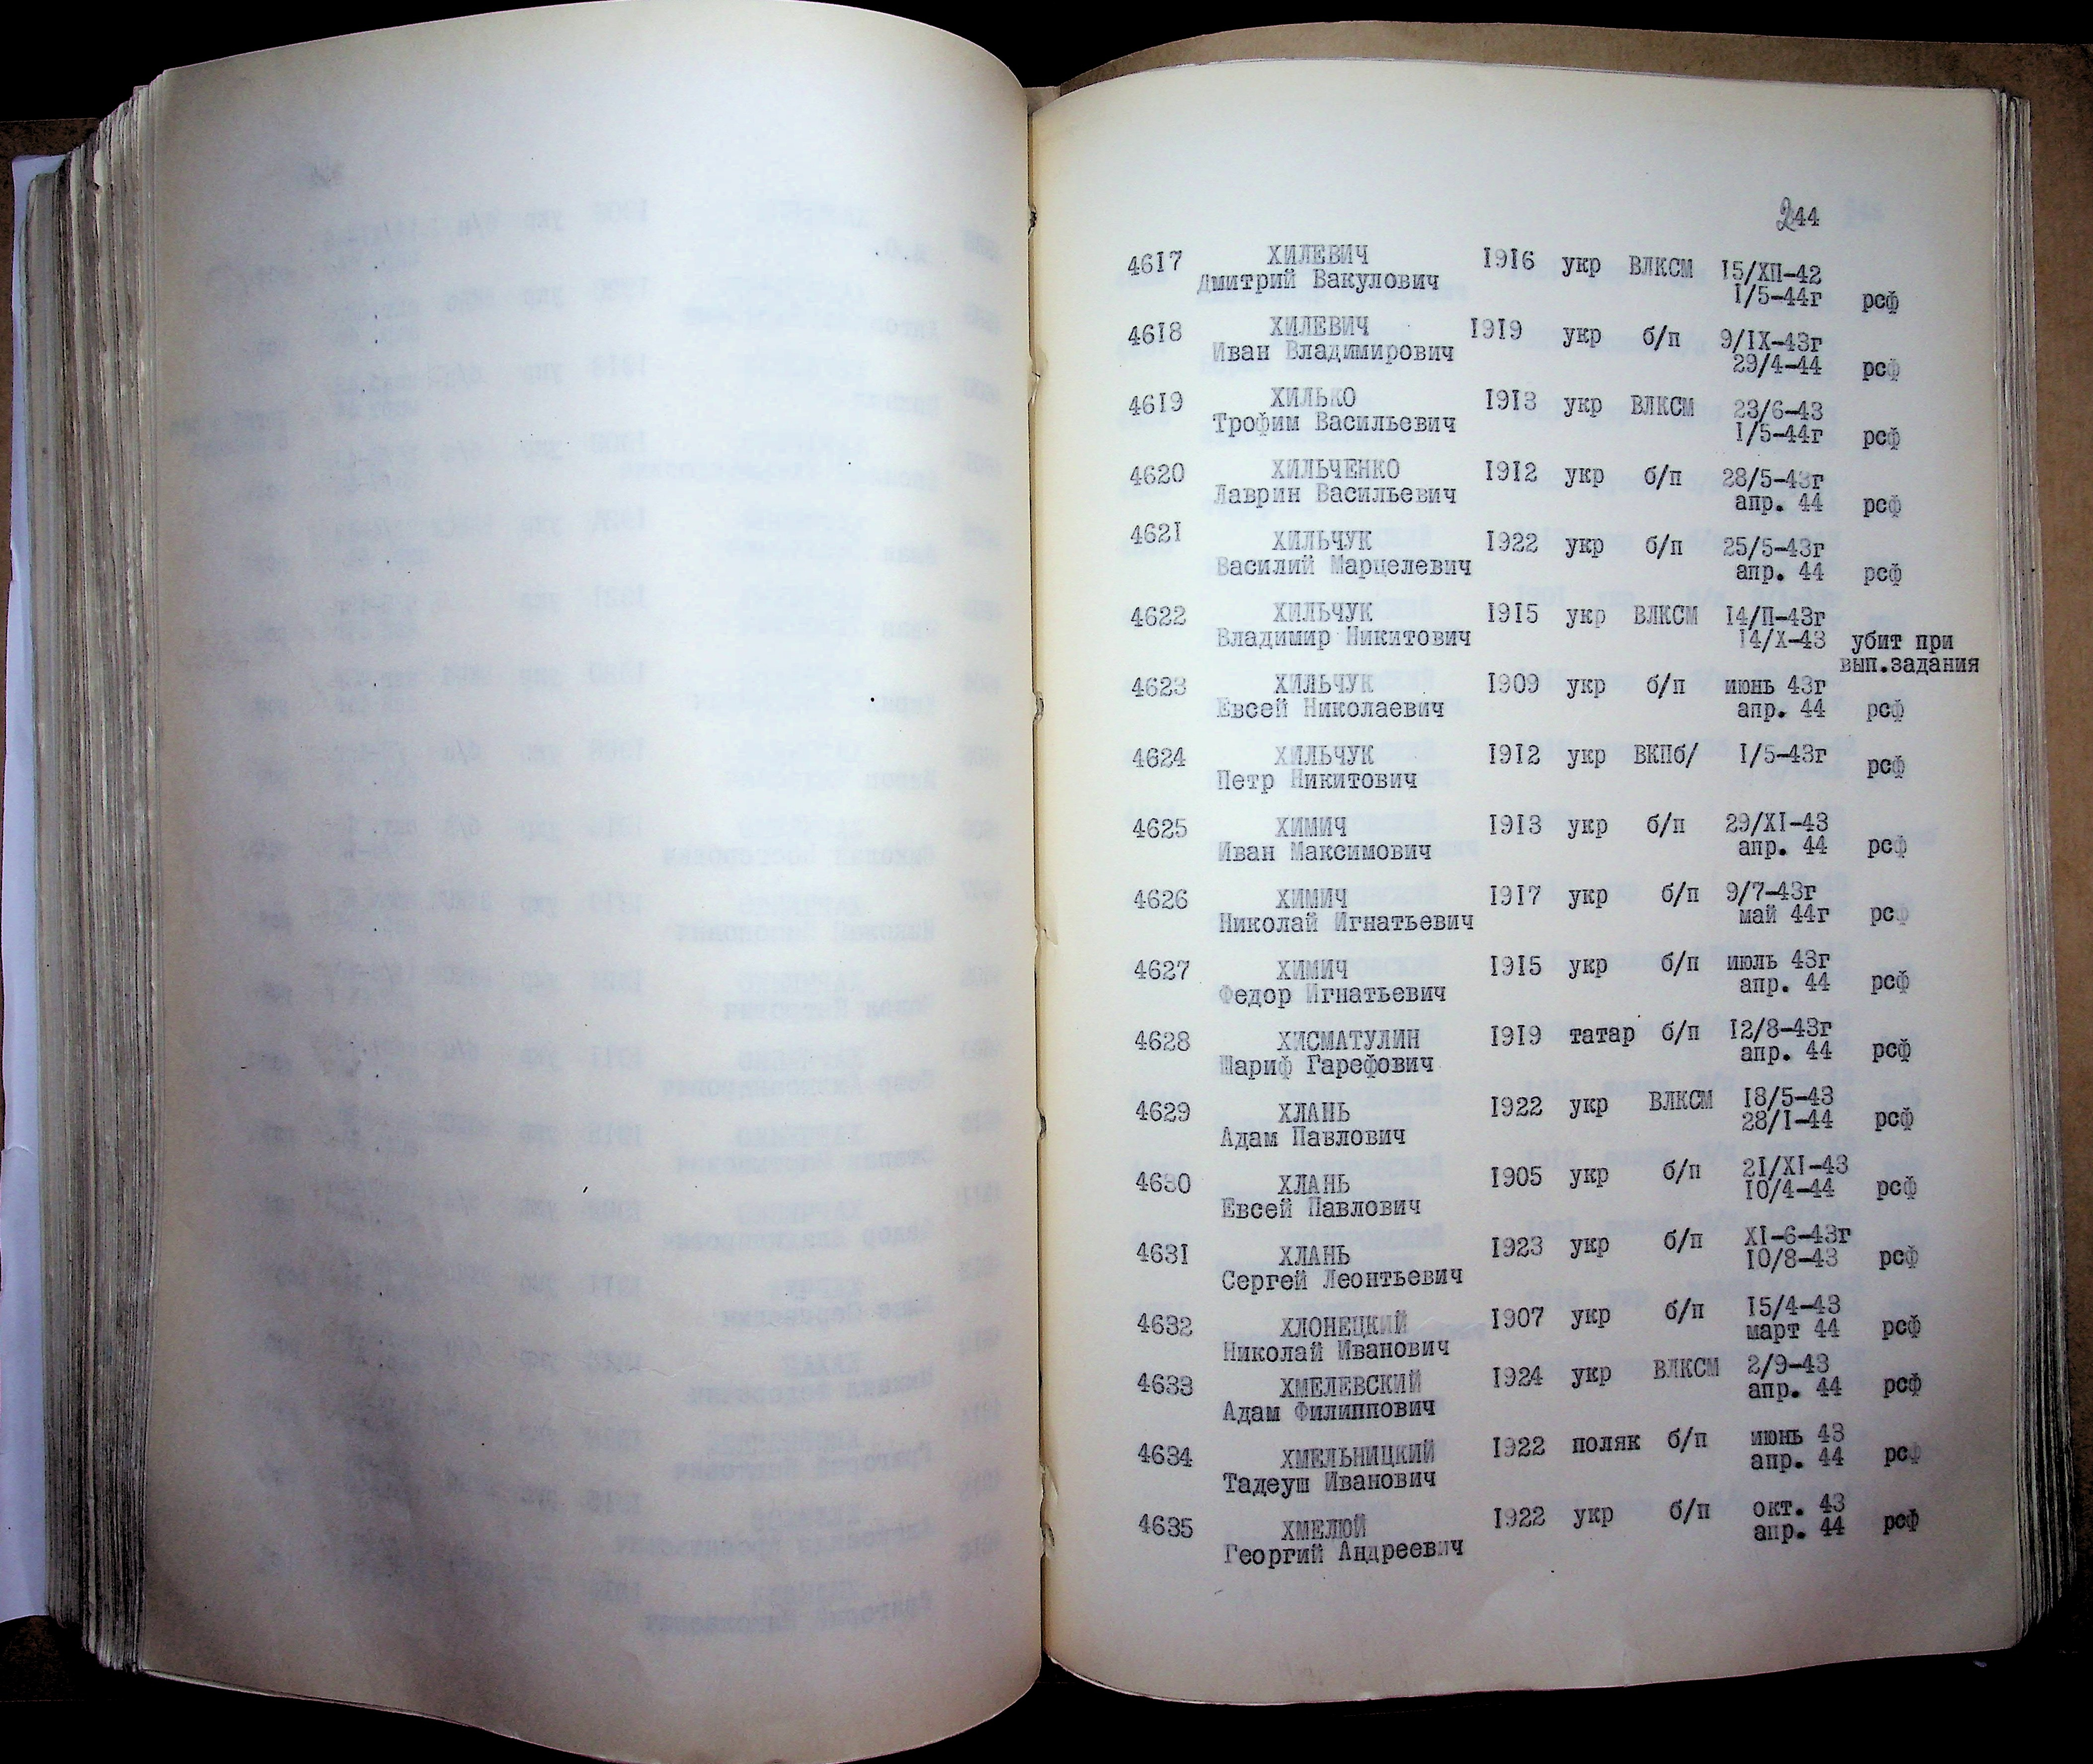 244
4617 ХИЛЕВИЧ 1916 укр ВЛКСМ 15/ХП-42
Дмитрий Вакулович 1/5-44г рсф
4618 ХИЛЕВИЧ 1919 укр б/п 9/IX-43г
Иван Владимирович 29/4-44 рсф
4619 ХИЛЬКО 1913 укр ВЛКСМ 23/6-43
Трофим Васильевич 1/5-44г рсф
4620 ХИЛЬЧЕНКО 1912 укр б/п 28/5-43г
Лаврин Васильевич апр. 44 рсф
4621 ХИЛЬЧУК 1922 укр б/п 25/5-43г
Василий Марцелевич апр. 44 рсф
4622 ХИЛЬЧУК 1915 укр ВЛКСМ 14/П-43г
Владимир Никитович 14/Х-43 убит при
вып.задания
4623 ХИЛЬЧУК 1909 укр б/п июнь 43г
Евсей Николаевич апр. 44 рсф
4624 ХИЛЬЧУК 1912 укр ВКПб/ 1/5-43г рсф
Петр Никитович
4625 ХИМИЧ 1913 укр б/п 29/XI-43
Иван Максимович апр. 44 рсф
4626 ХИМИЧ 1917 укр б/п 9/7-43г
Николай Игнатьевич май 44г рсф
4627 ХИМИЧ 1915 укр б/п июль 43г
Федор Игнатьевич апр. 44 рсф
4628 ХИСМАТУЛИН 1919 татар б/п 12/8-43г
Шариф Гарефович апр. 44 рсф
4629 ХЛАНЬ 1922 укр ВЛКСМ 18/5-43
Адам Павлович 28/I-44 рсф
4630 ХЛАНЬ 1905 укр б/п 21/XI-43
Евсей Павлович 10/4-44 рсф
4631 ХЛАНЬ 1923 укр б/п XI-6-43г
Сергей Леонтьевич 10/8-43 рсф
4632 ХЛОНЕЦКИЙ 1907 укр б/п 15/4-43
Николай Иванович март 44 рсф
4633 ХМЕЛЕВСКИЙ 1924 укр ВЛКСМ 2/9-43
Адам Филиппович апр. 44 рсф
4634 ХМЕЛЬНИЦКИЙ 1922 поляк б/п июнь 43
Тадеуш Иванович апр. 44 рсф
4635 ХМЕЛЮЙ 1922 укр б/п окт. 43
Георгий Андреевич апр. 44 рсф